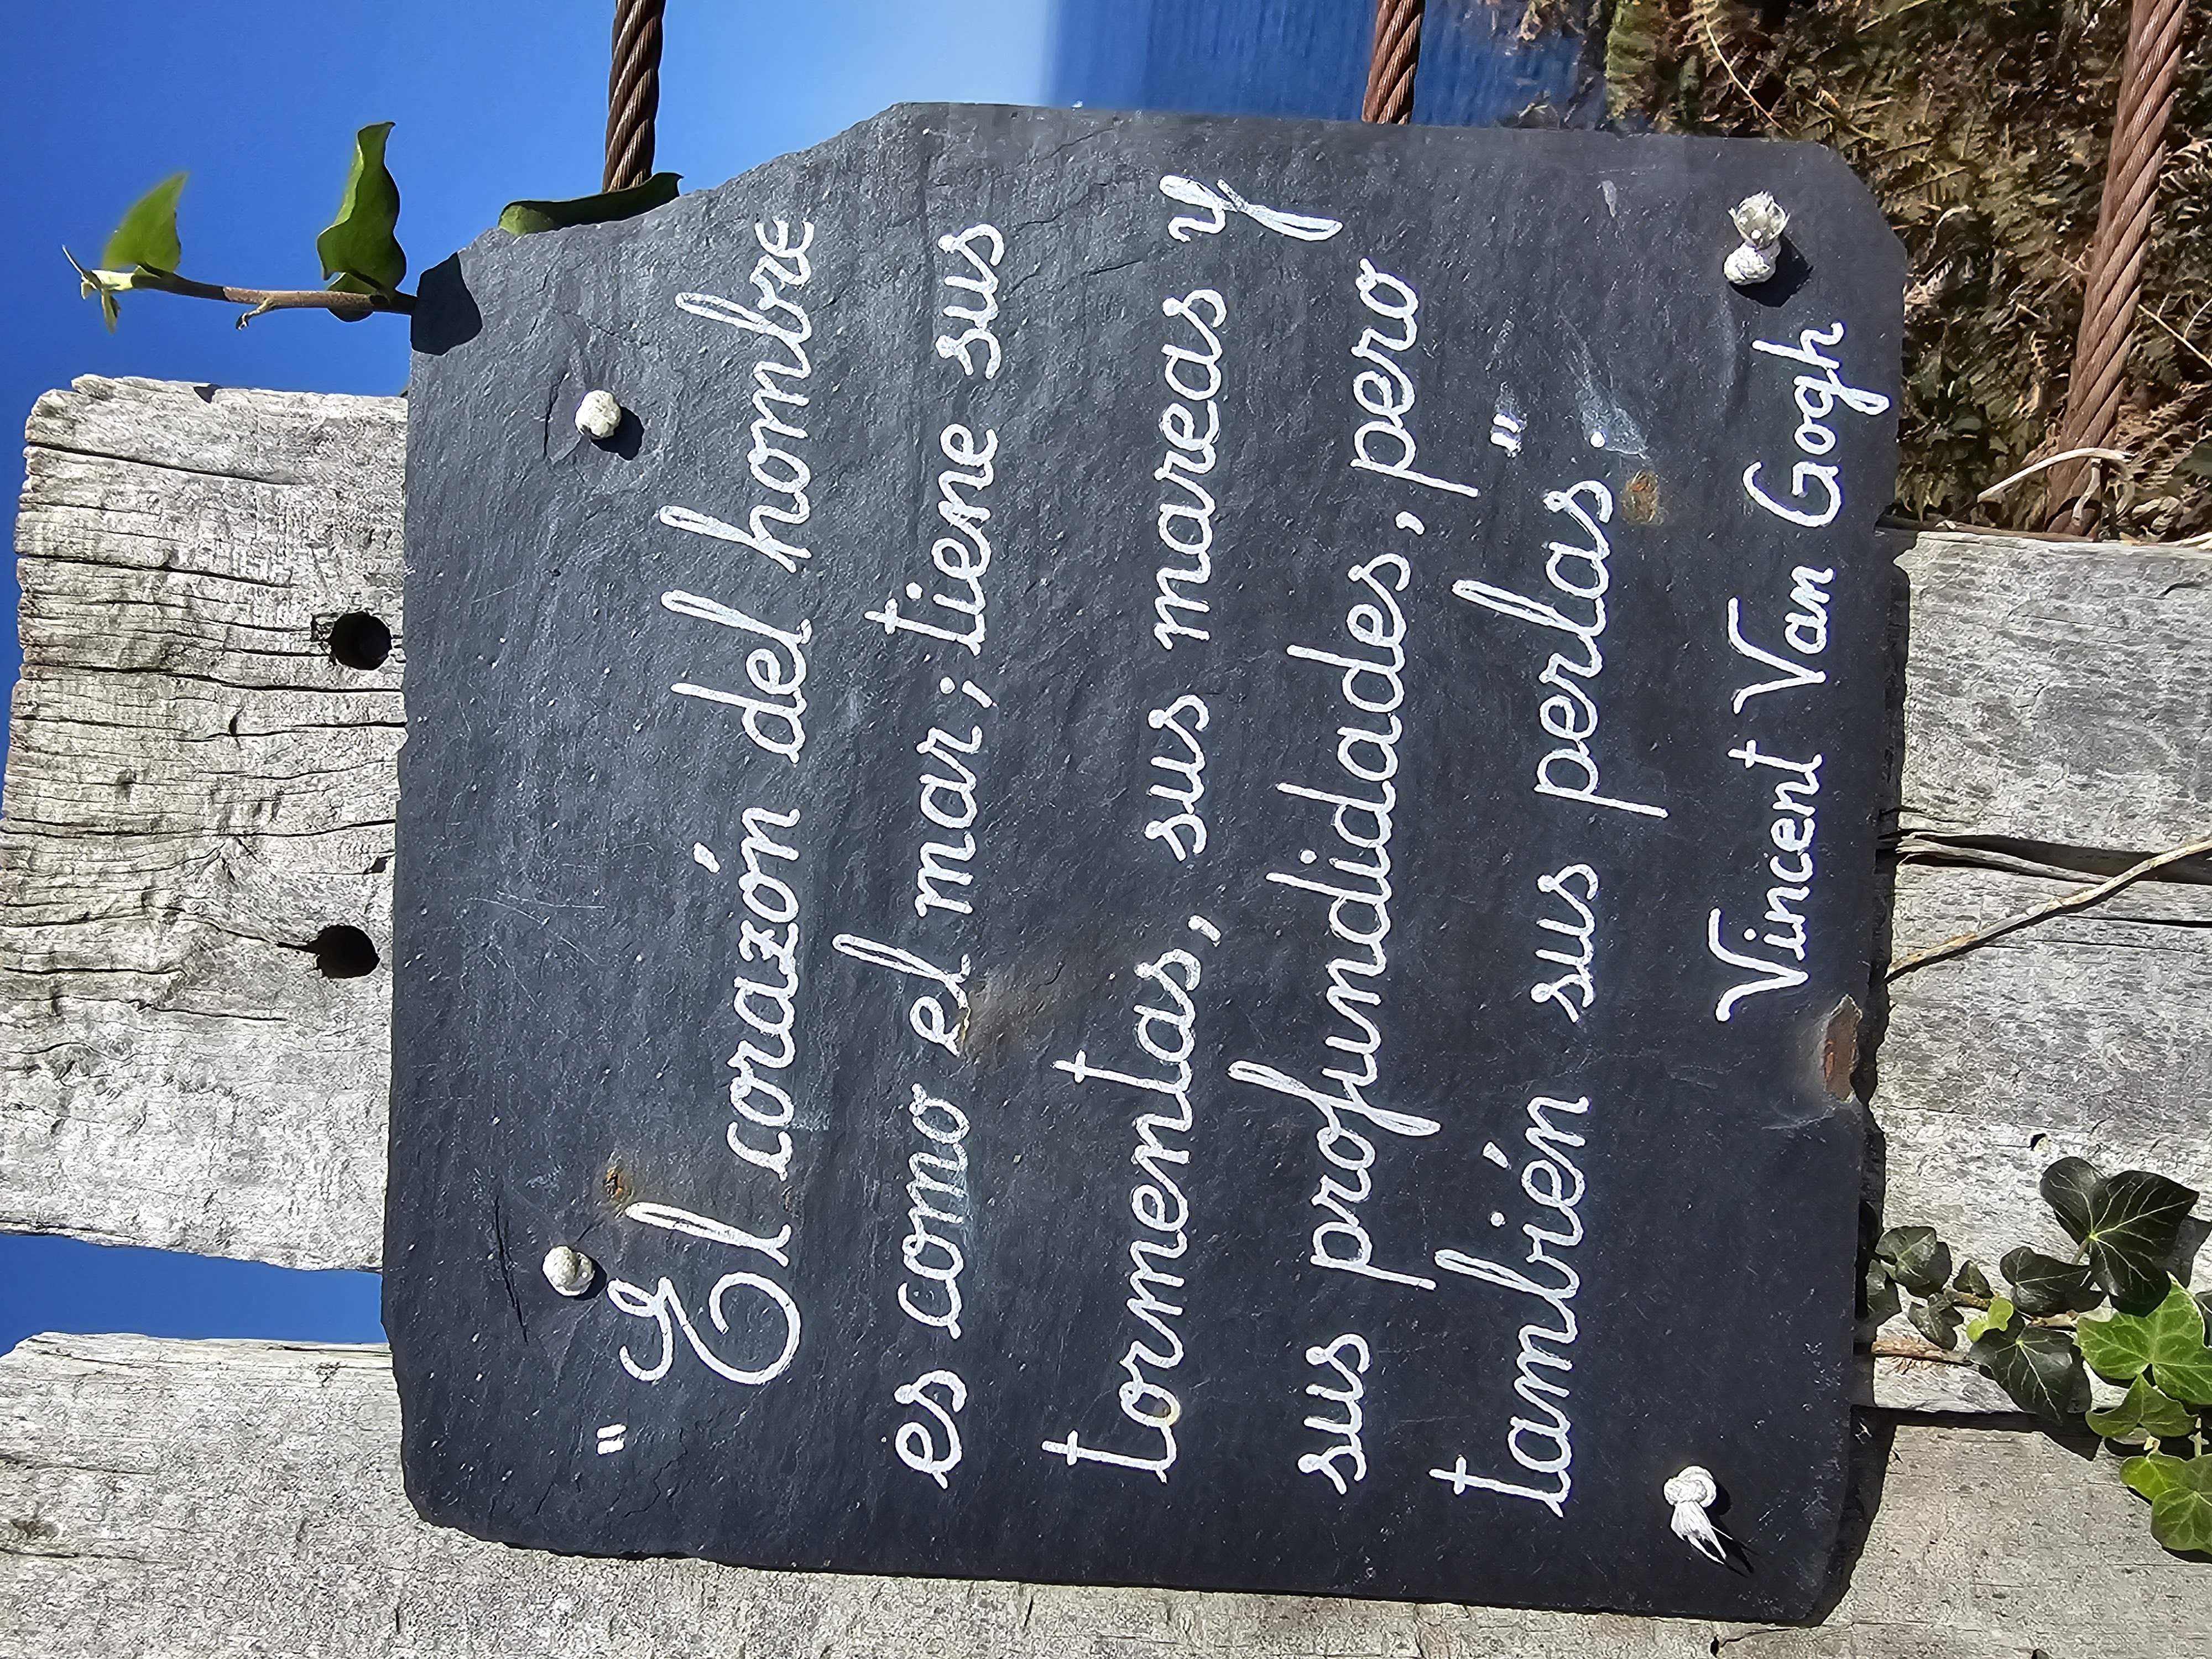 "El corazón del hombre
es como el mar; tiene sus
tormentas, sus mareas y
sus profundidades, pero
también sus perlas."
Vincent Van Gogh